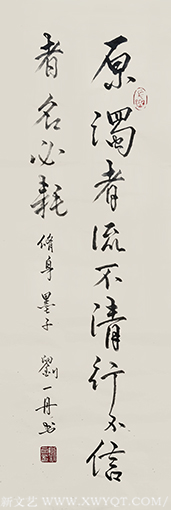 原濁者流不清行不信
者名必耗
脩身 墨子 劉一丹书
新文艺 WWW.XWYQT.COM